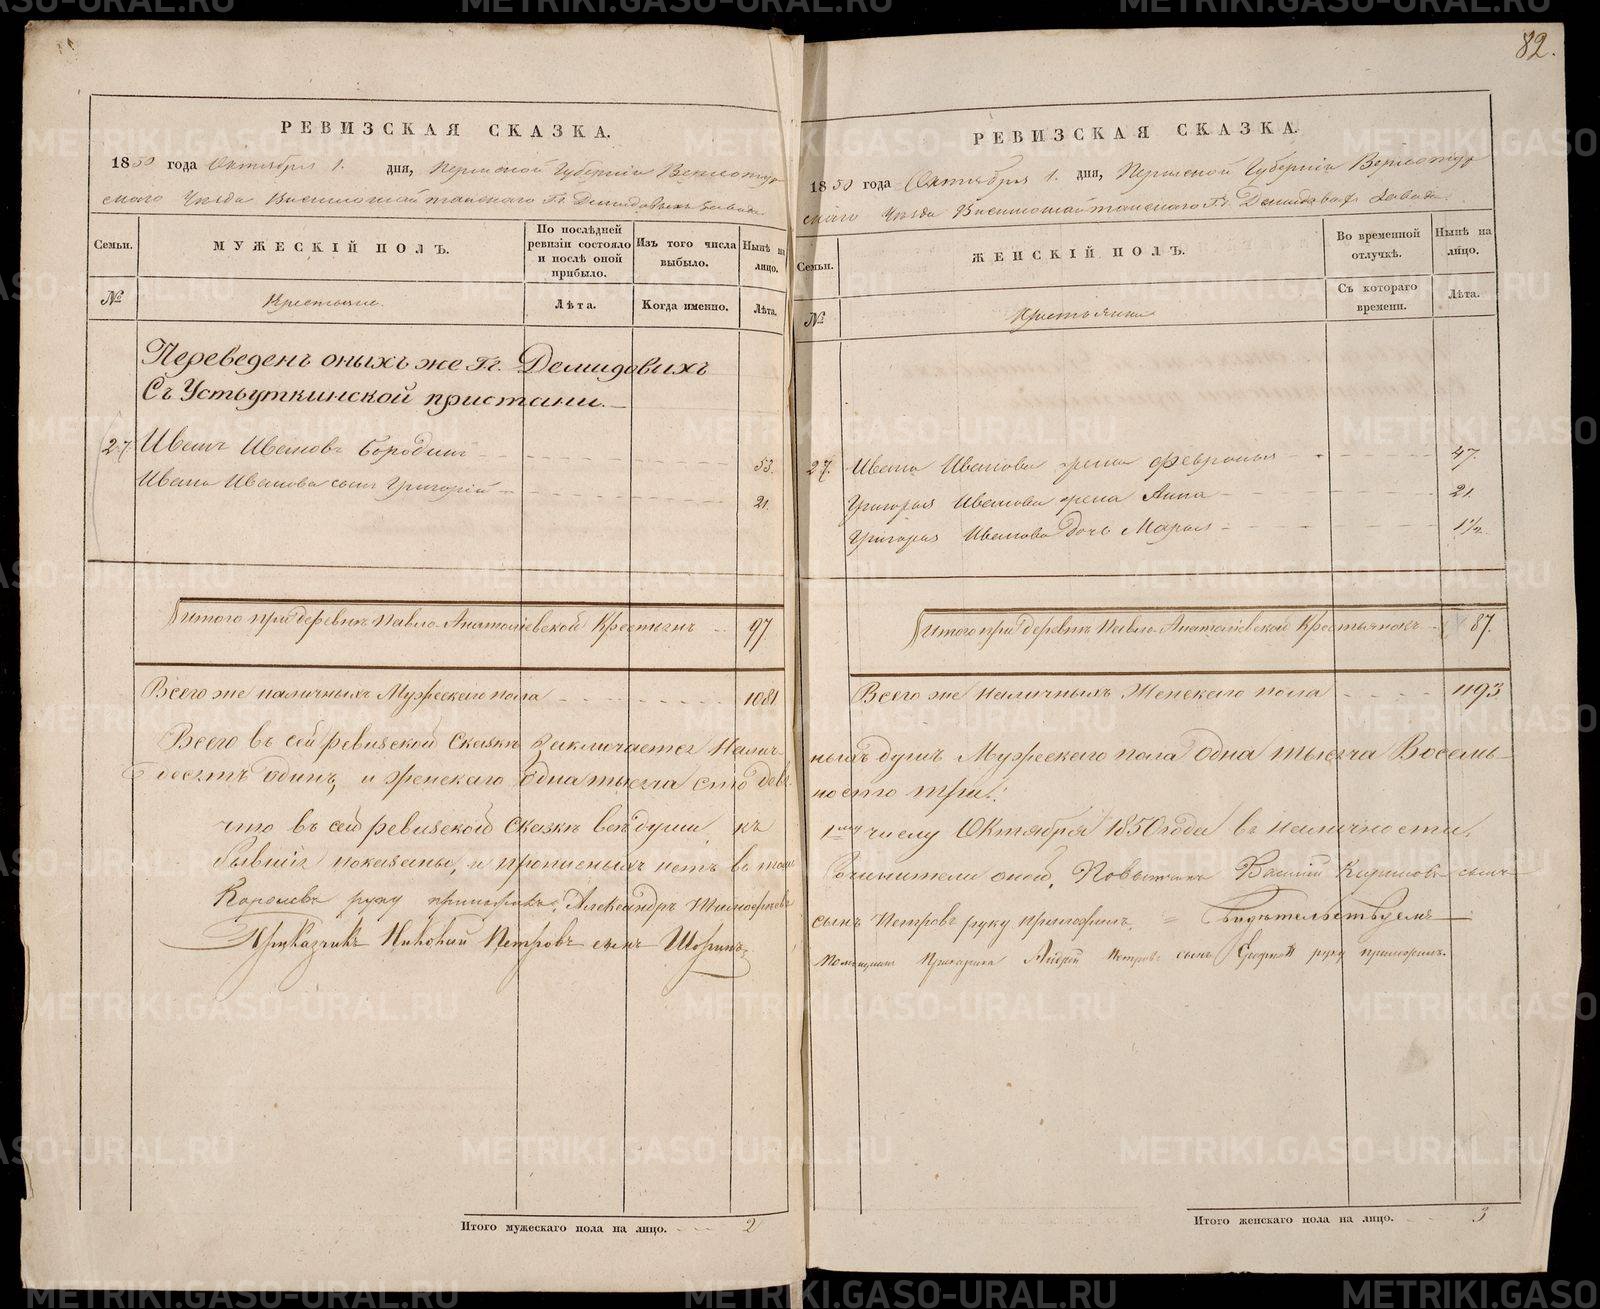 82.
РЕВИЗСКАЯ СКАЗКА.
1850 года Октября 1. дня, Пермской Губернiи Верхотур
скаго Уѣзда Висимошайтанскаго Гг. Демидовыхъ завода
Семьи.
МУЖЕСКIЙ ПОЛЪ.
По послѣдней ревизiи состояло и послѣ оной прибыло.
Изъ того числа выбыло.
Нынѣ на лицо.
№
Крестьяне.
Лѣта.
Когда именно.
Лѣта.
Переведенъ оныхъ же Гг. Демидовыхъ
Съ Устьуткинской пристани.
27. Иванъ Ивановъ Бородинъ 53.
Ивана Иванова сынъ Григорiй 21.
Итого при деревнѣ Павло-Анатолiевской Крестьянъ 97
Всего же наличныхъ Мужескаго пола 1081
Всего въ сей ревизской Сказкѣ заключается Налич
десятъ одинъ, и женскаго одна тысяча сто девя
что въ сей ревизской сказкѣ всѣ души къ
бывшiя показаны, и прописныхъ нетъ въ томъ
Королевъ руку приложилъ, Александръ Тимофѣевъ
Прикащикъ Никонiй Петровъ сынъ Шоринъ
Итого мужескаго пола на лицо. 2
РЕВИЗСКАЯ СКАЗКА.
1850 года Октября 1. дня, Пермской Губернiи Верхотур
скаго Уѣзда Висимошайтанскаго Гг. Демидовыхъ Завода.
Семьи.
ЖЕНСКIЙ ПОЛЪ.
Во временной отлучкѣ.
Нынѣ на лицо.
№
Крестьянки
Съ котораго времени.
Лѣта.
27. Ивана Иванова жена Февронья 47.
Григорья Иванова жена Анна 21.
Григорья Иванова дочь Марья 1 1/2.
Итого при деревнѣ Павло-Анатолiевской Крестьянокъ 87.
Всего же наличныхъ Женскаго пола 1193
ныхъ душъ Мужескаго пола одна тысяча Восемь
носто три.
1му числу Октября 1850 года въ наличности,
Сочинители оной, Повытчикъ Василiй Кириловъ сынъ
сынъ Петровъ руку приложилъ. = Свидѣтельствуемъ
Помощникъ Прикащика Андрей Петровъ сынъ руку приложилъ.
Итого женскаго пола на лицо. 3
METRIKI.GASO-URAL.RU